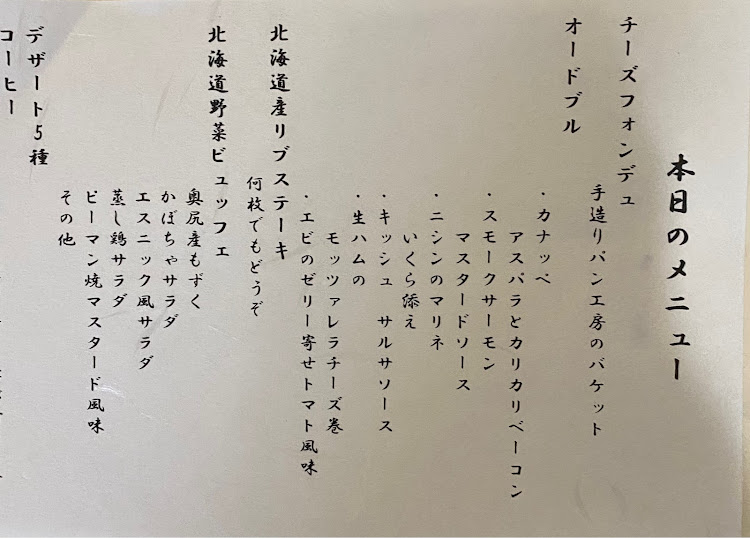 本日のメニュー
チーズフォンデュ
手造りパン工房のバケット
オードブル
・カナッペ
アスパラとカリカリベーコン
・スモークサーモン
マスタードソース
・ニシンのマリネ
いくら添え
・キッシュ サルサソース
・生ハムの
モッツァレラチーズ巻
・エビのゼリー寄せトマト風味
北海道産リブステーキ
何枚でもどうぞ
北海道野菜ビュッフェ
奥尻産もずく
かぼちゃサラダ
エスニック風サラダ
蒸し鶏サラダ
ピーマン焼マスタード風味
その他
デザート5種
コーヒー